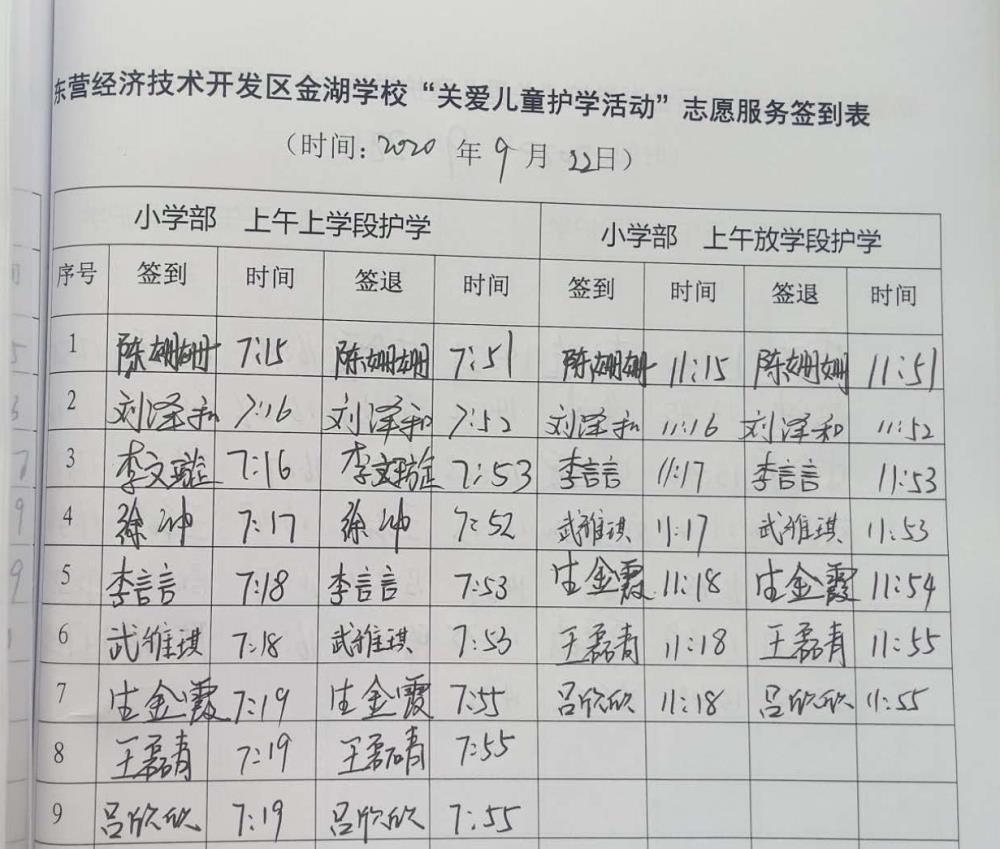 东营经济技术开发区金湖学校“关爱儿童护学活动”志愿服务签到表
（时间：2020 年 9 月 22日）
小学部 上午上学段护学 小学部 上午放学段护学
序号 签到 时间 签退 时间 签到 时间 签退 时间
1 陈姗姗 7:15 陈姗姗 7:51 陈姗姗 11:15 陈姗姗 11:51
2 刘泽和 7:16 刘泽和 7:52 刘泽和 11:16 刘泽和 11:52
3 李文璇 7:16 李文璇 7:53 李言言 11:17 李言言 11:53
4 徐冲 7:17 徐冲 7:52 武维琪 11:17 武维琪 11:53
5 李言言 7:18 李言言 7:53 生金霞 11:18 生金霞 11:54
6 武维琪 7:18 武维琪 7:53 王磊青 11:18 王磊青 11:55
7 生金霞 7:19 生金霞 7:55 吕欣欣 11:18 吕欣欣 11:55
8 王磊青 7:19 王磊青 7:55
9 吕欣欣 7:19 吕欣欣 7:55